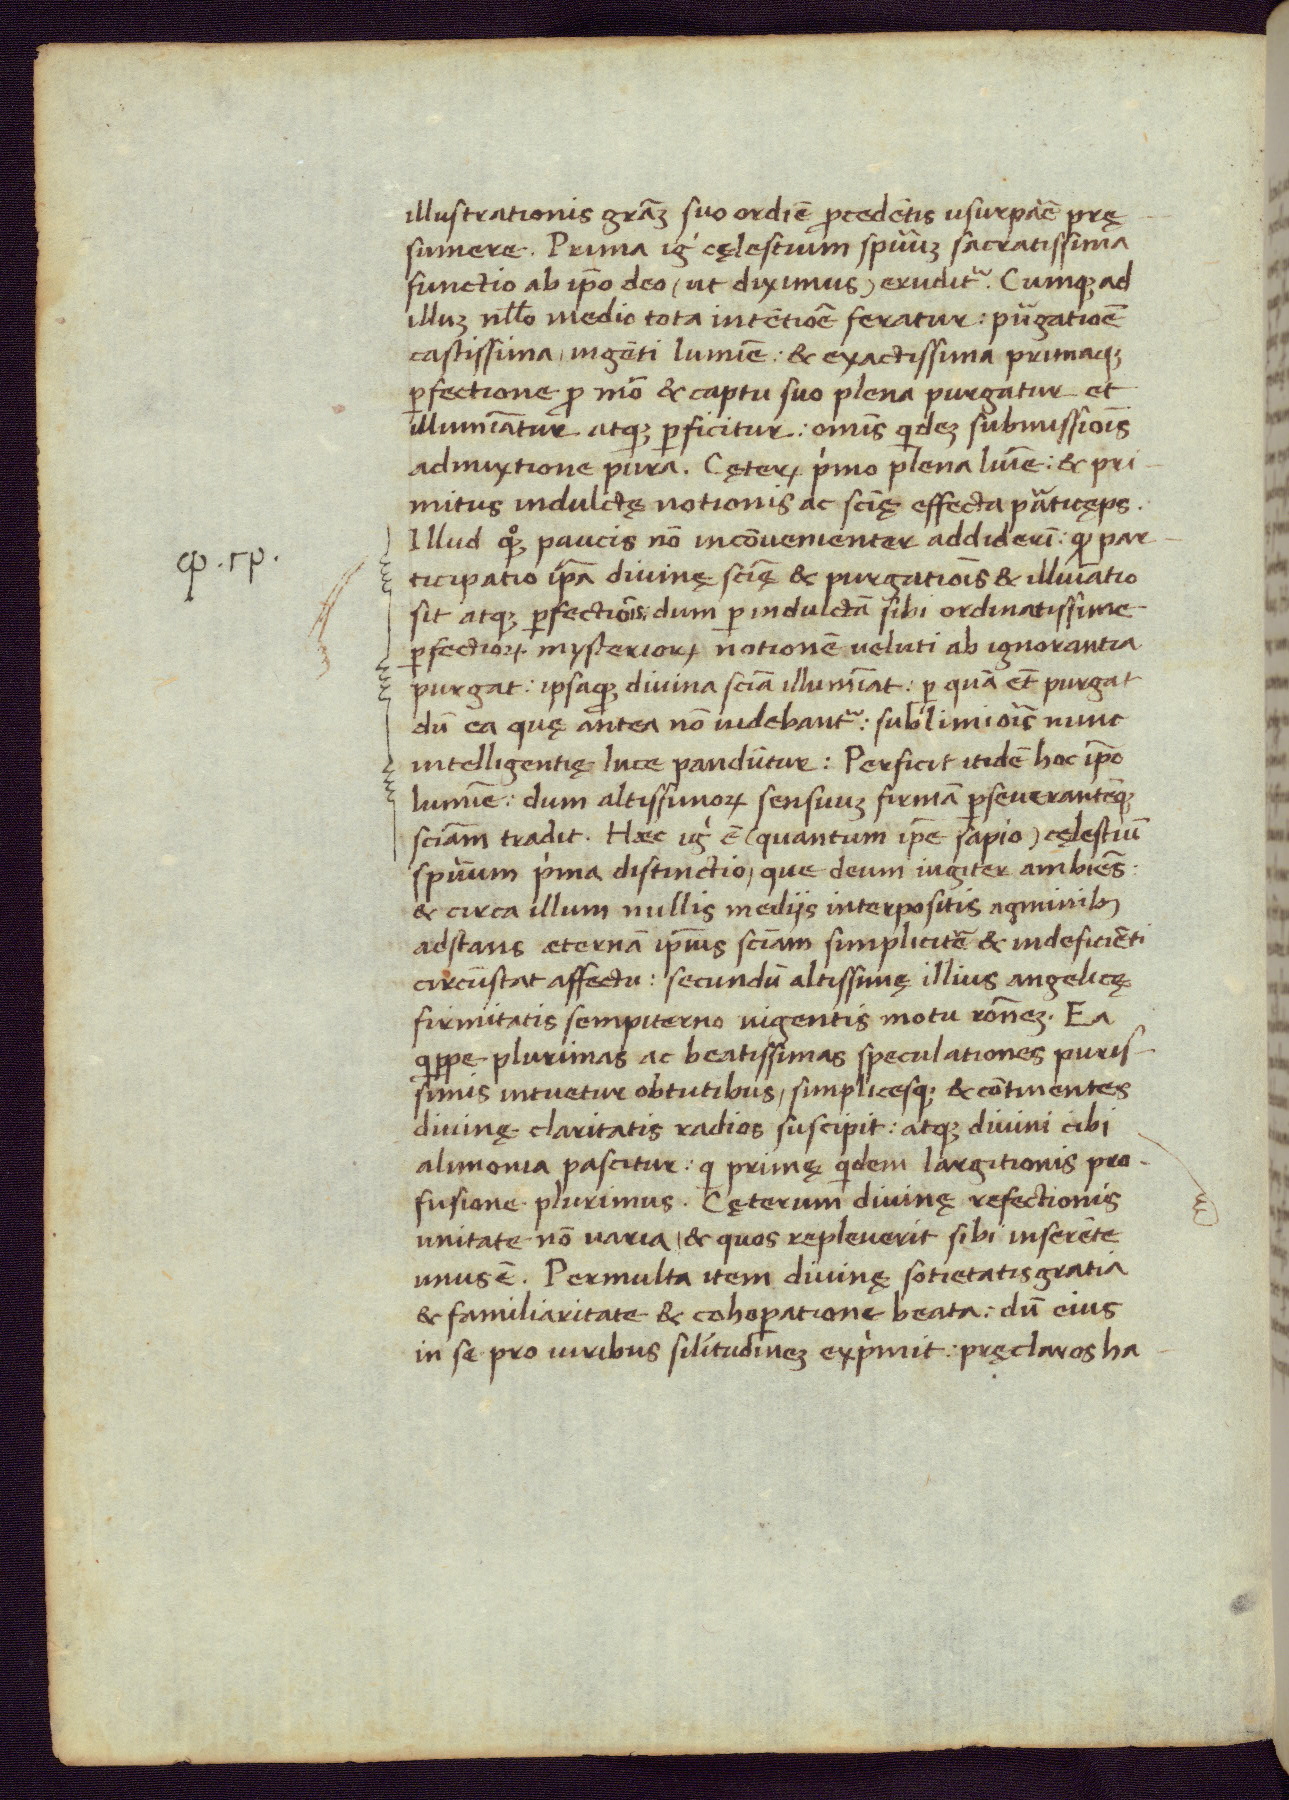 illustrationis grāꝫ suo ordiē ꝓcedētis usurpaͨē pręꝫ
sumere. Prima ig̓ cęlestium spūuꝫ sacratissima
functio ab ip̄o deo (ut diximus) erudit᷑. Cumqꝫ ad
illuꝫ nll̄o medio tota intētiōē feratur: pu᷑gatiōē
castissima, ingēti lumīe: & exactissima primaqꝫ
ꝑfectione ꝓ mō & captu suo plena purgatur et
illumīatur atqꝫ ꝑficitur: omīs qͥdeꝫ submissiōīs
admixtione pura. Cęteꝝ pͥmo plena luīe: & pri
mitus indulctę notionis ac scīę effecta pᷓticęps.
Illud qͦꝫ paucis nō incōvenienter addiderī: ꝙ par
ticipatio ip̄a divinę scīę & purgatiōīs & illuīatio
sit atqꝫ ꝑfectiōīs: dum ꝑ indulctā sibi ordinatissime
ꝑfectioꝝ mysterioꝝ notionē veluti ab ignorantia
purgat: ipsaqꝫ divina scīa illumīat: ꝑ quā et̄ purgat
dū ea quę antea nō videbant᷑: sublimiōīs nunc
intelligentię luce pandūtur: Perficit itidē hoc ip̄o
lumīe: dum altissimoꝝ sensuuꝫ firmā ꝑseverantēqꝫ
scīam tradit. Hæc ig̓ ē (quantum ip̄e sapio) cęlestiū
spūum pͥma distinctio, que deum iugiter ambiēs:
& circa illum nullis mediis interpositis agminibꝫ
adstans æternā ip̄ius scīam simplicitē & indeficiēti
circūstat affectu: secundū altissimę illius angelicę
firmitatis sempiterno vigentis motu rōneꝫ. Ea
qͥppe plurimas ac beatissimas speculationes puris
simis intuetur obtutibus, simplicesqꝫ & cōtinentes
divinę claritatis radios suscipit: atqꝫ divini cibi
alimonia pascitur: q primę qͥdem largitionis pro
fusione plurimus. Cęterum divinę refectionis
unitate nō varia, & quos repleverit sibi inserēte
unus ē. Permulta item divinę sotietatis gratia
& familiaritate & cohoꝑatione beata: dū eius
in se pro viribus silitudineꝫ expͥmit: pręclaros ha